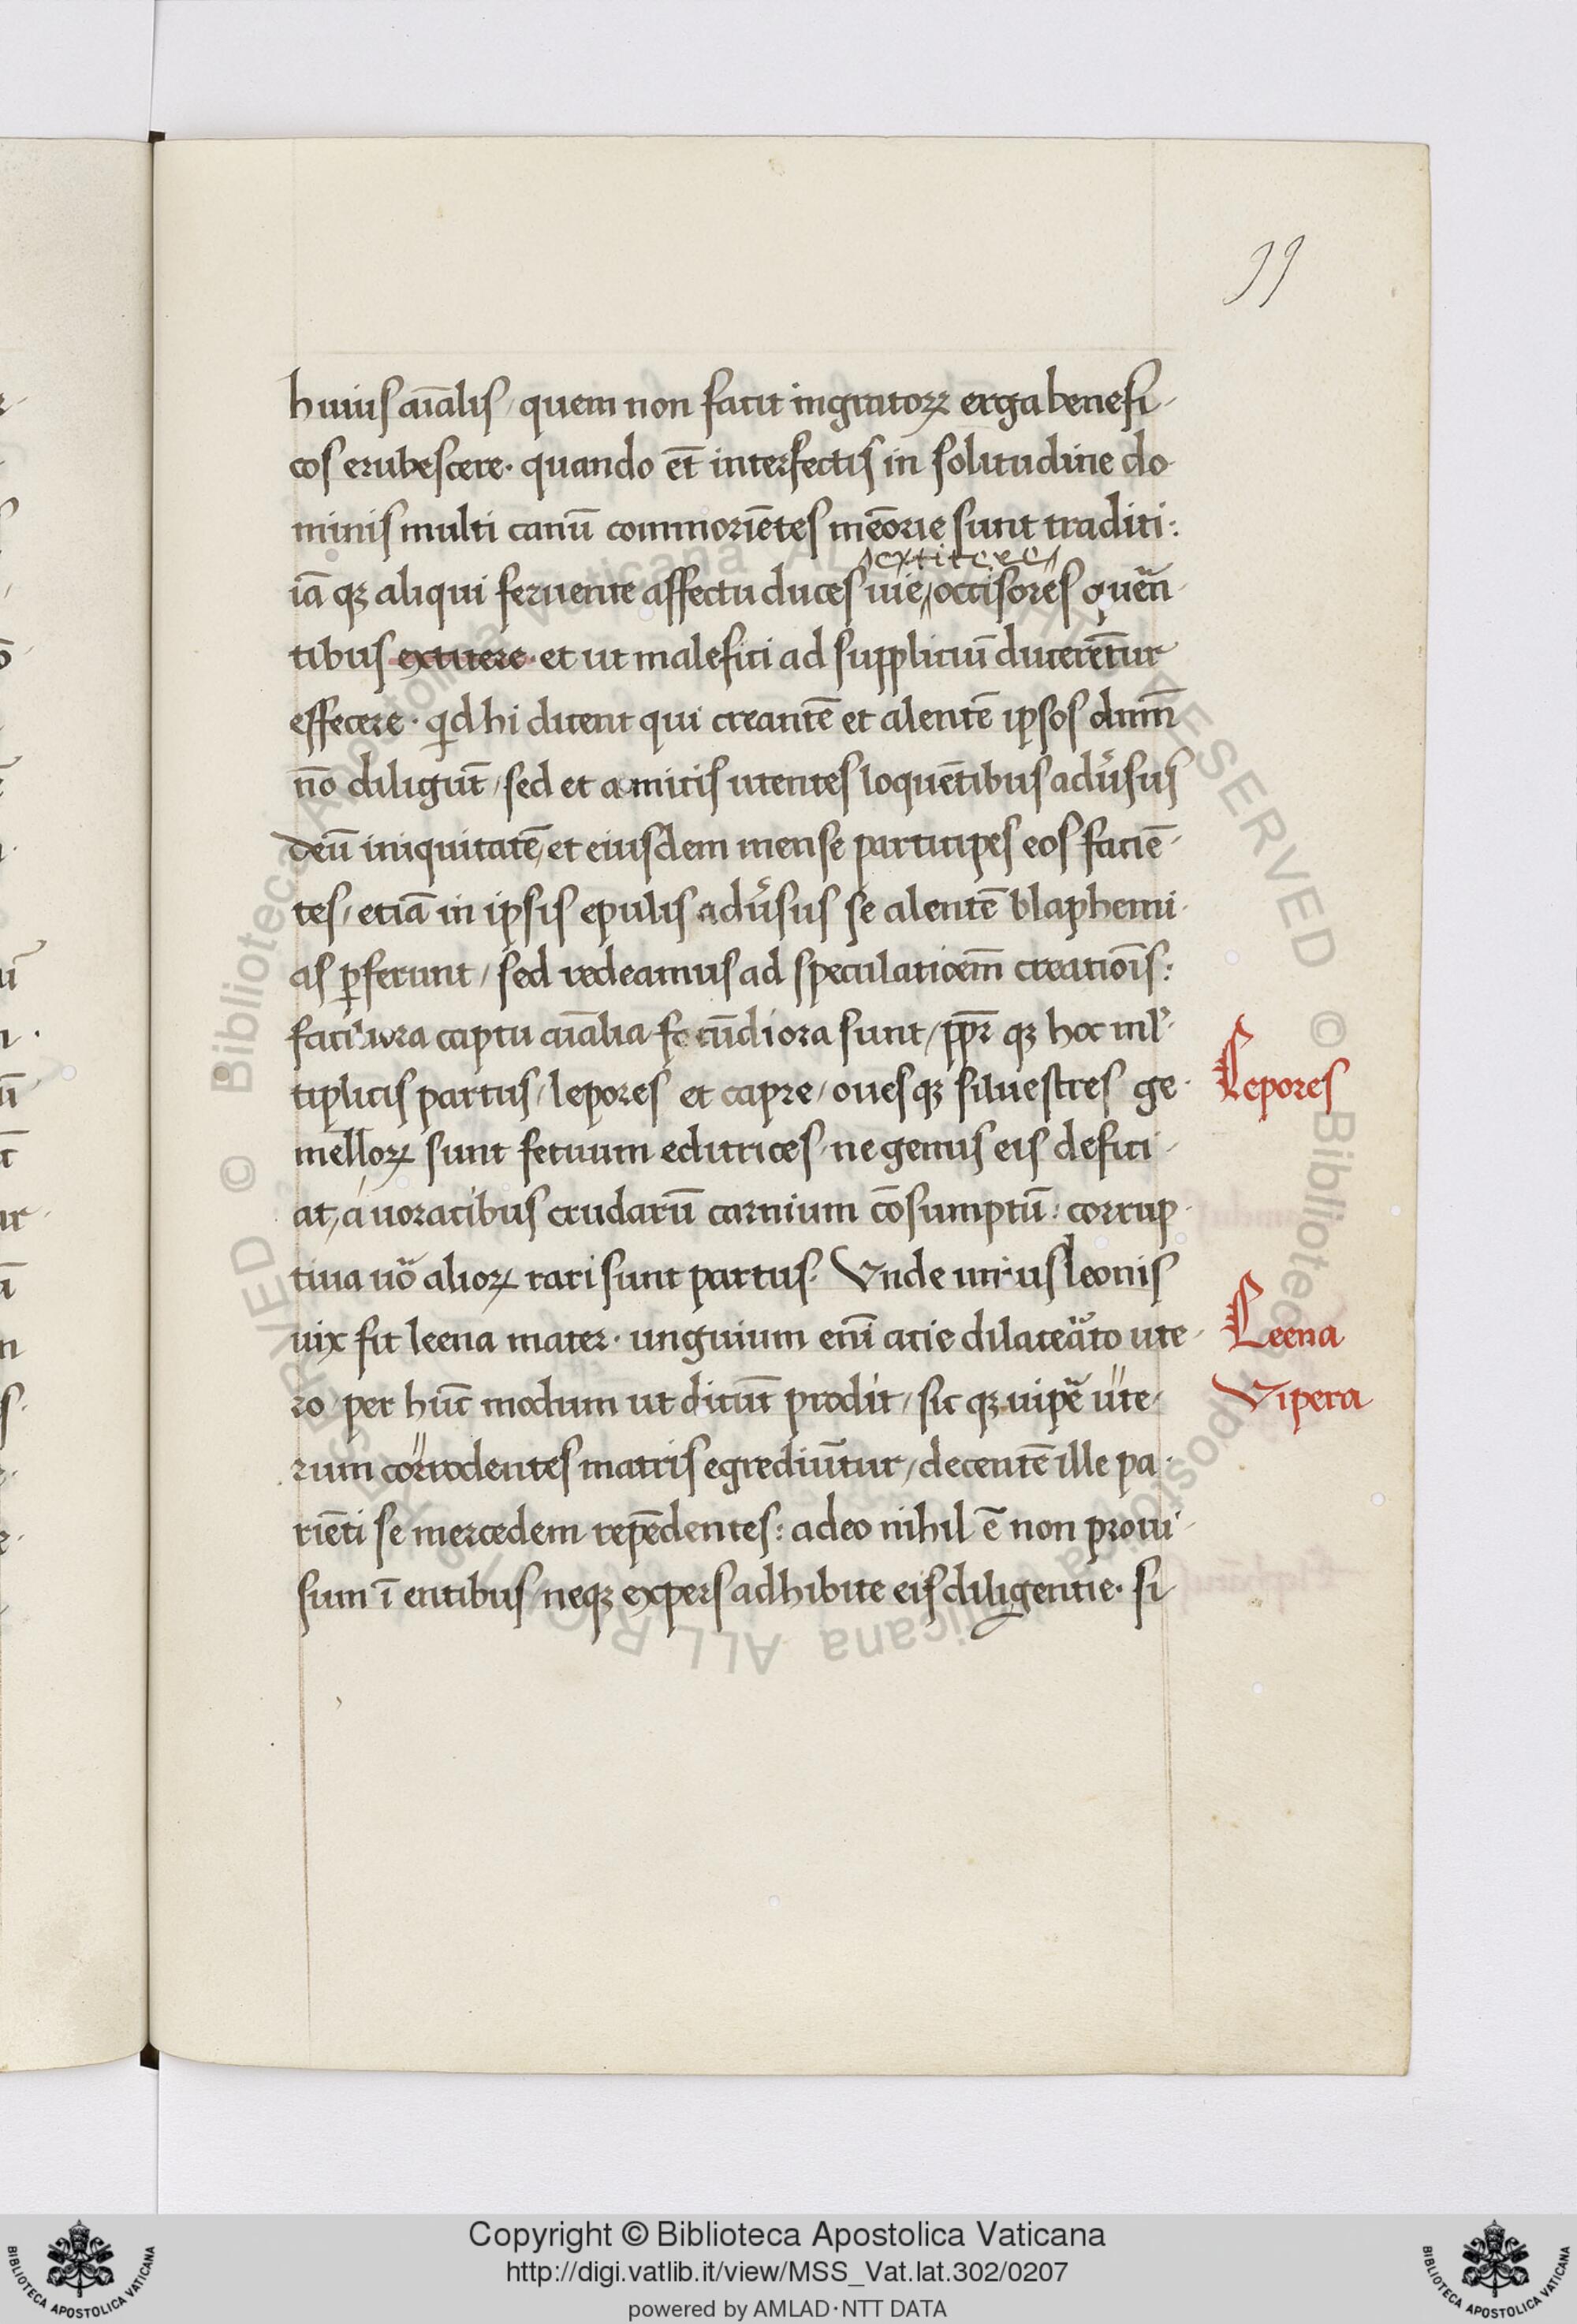 99
huius aīalis / quem non facit ingratoꝝ erga benefi-
cos erubescere · quando et̄ interfectis in solitudine do
minis multi canū commoriētes meōrie sunt traditi :
extitere
iā qꝫ aliqui feruente affectu duces uie // occisores quen̄
tibus extitere · et ut malefici ad suppliciū ducerēt̄ur
effecere · qd hi dicent qui creantē et alentē ipsos dnm̄
nō diligūt / sed et amicis utentes loquētibus adu͛sus
deū iniquitatē / et eiusdem mense participes eos faciē-
tes / etiā in ipsis epulis adu͛sus se alentē blaphemi-
as ꝑferunt / sed redeamus ad speculatioēm creatiōis :
faciliora captu aīalia fecūdiora sunt / ppr̄ qꝫ hoc ml'-
tiplicis partus / lepores et capre / ouesqꝫ siluestres ge-
Lepores
mēlloꝝ sunt fetuum editrices / ne genus eis defici-
at / a uoracibus crudarū carnium cōsumptū : corrup-
tiua uō alioꝝ rari sunt partus · Vnde unius leonis
uix fit leena mater · unguium enī acie dilaceāto ute-
Leena
ro per hūc modum ut dicūt prodit / sicqꝫ uipe ute-
Vipera
rum corrodentes matris egrediūtur / decentē ille pa-
riēti se mercedem repēdentes : adeo nihil ē non proui-
sum ī entibus neqꝫ expers adhibite eis diligentie · si
Copyright © Biblioteca Apostolica Vaticana
http://digi.vatlib.it/view/MSS_Vat.lat.302/0207
powered by AMLAD·NTT DATA
BIBLIOTECA APOSTOLICA VATICANA
BIBLIOTECA APOSTOLICA VATICANA